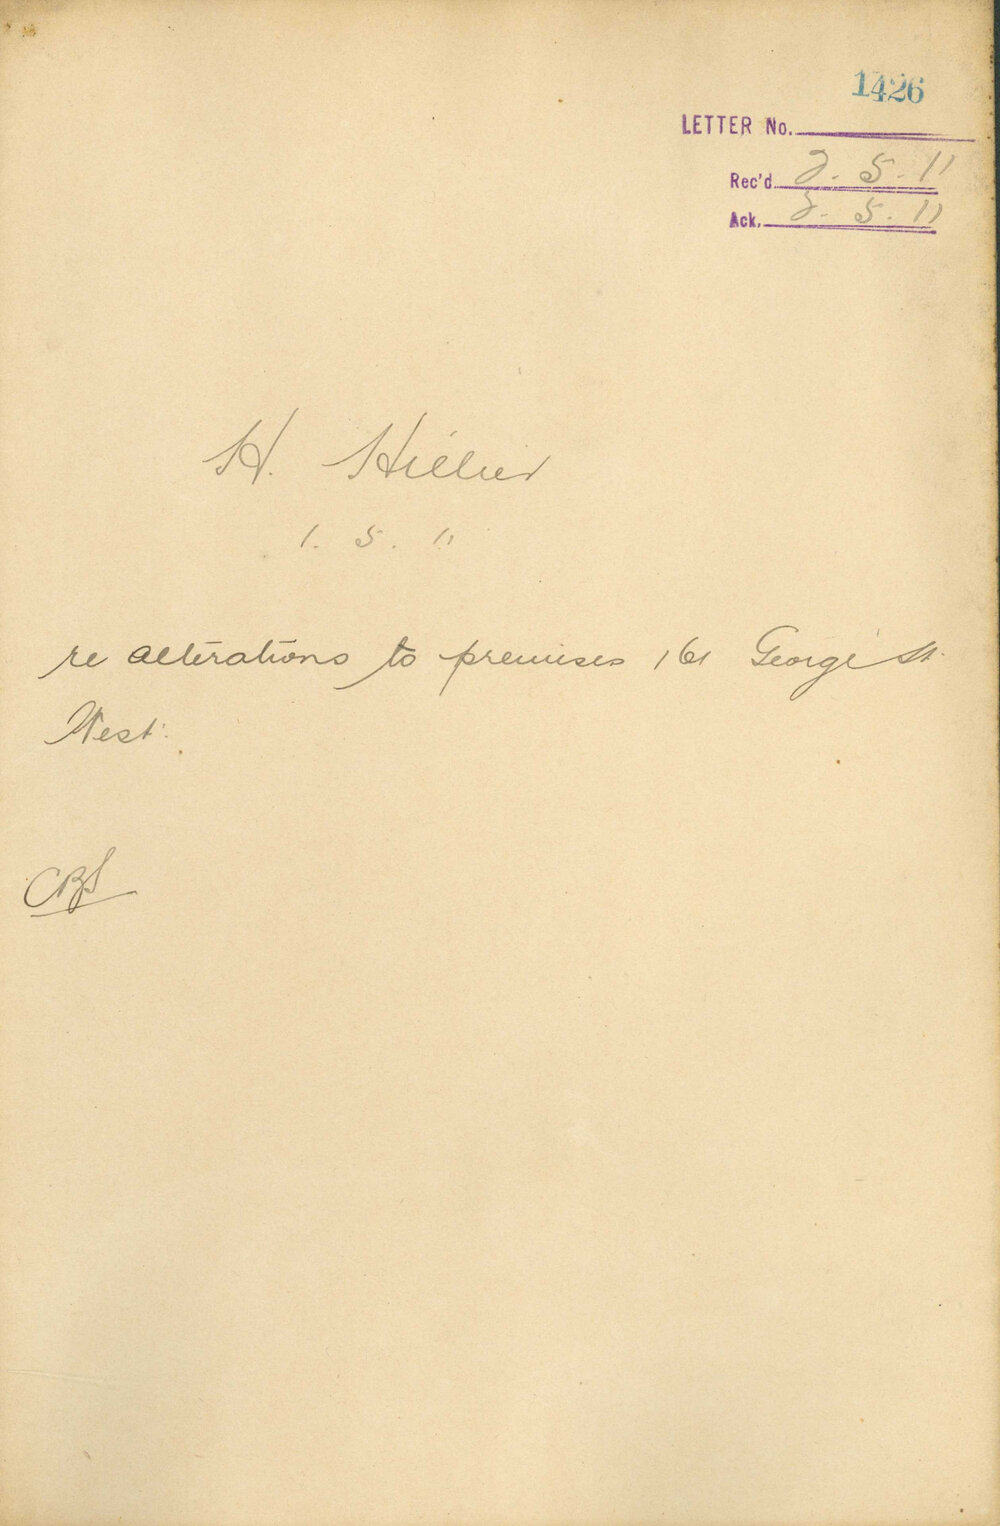 1426
LETTER No.
Rec'd 2. 5. 11
Ack. 2. 5. 11
H. Hillier
1. 5. 11
re alterations to premises 161 George St.
West.